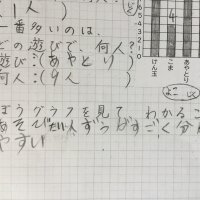 1人
一番多いのは、
どの遊びで、何人?
遊び:(あやとり)
何人:(9人)
4
5
4
3
2
1
0
けん玉
こま
あやとり
よこじく
ぼうグラフを見て わかるこ
あそびたい人ずうがすごく分か
やすい